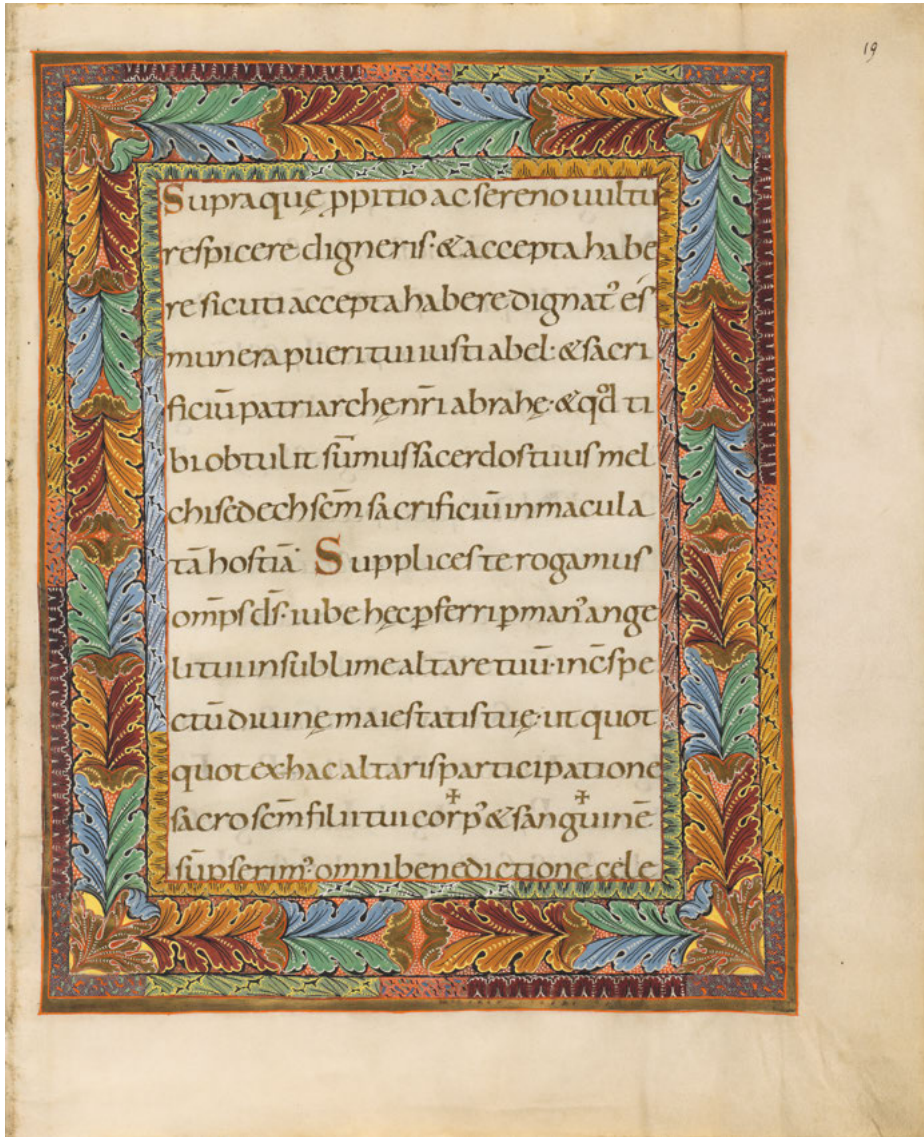 19
Supraquę ꝓpitio ac sereno uultu
respicere digneris· & accepta habe
re sicuti accepta habere dignat᾽ és
munera pueri tui iusti abel· & sacri
ficiū patriarchę nr̄i abrahę· & qđ ti
bi obtulit sūmus sacerdos tuus mel
chisedech sc̄m sacrificiū inmacula
tā hostiā· Supplices te rogamus
omp̄s d̄s· iube hęc ꝑferri ꝑ man᾽ ange
li tui in sublime altare tuū· in c̄spe
ctū diuinę maiestatis tuę· ut quot
quot ex hac altaris participatione
sacrosc̄m filii tui ✠ corp᾽ & ✠ sanguinē
sūpserim᾽ omni benedictione cęle